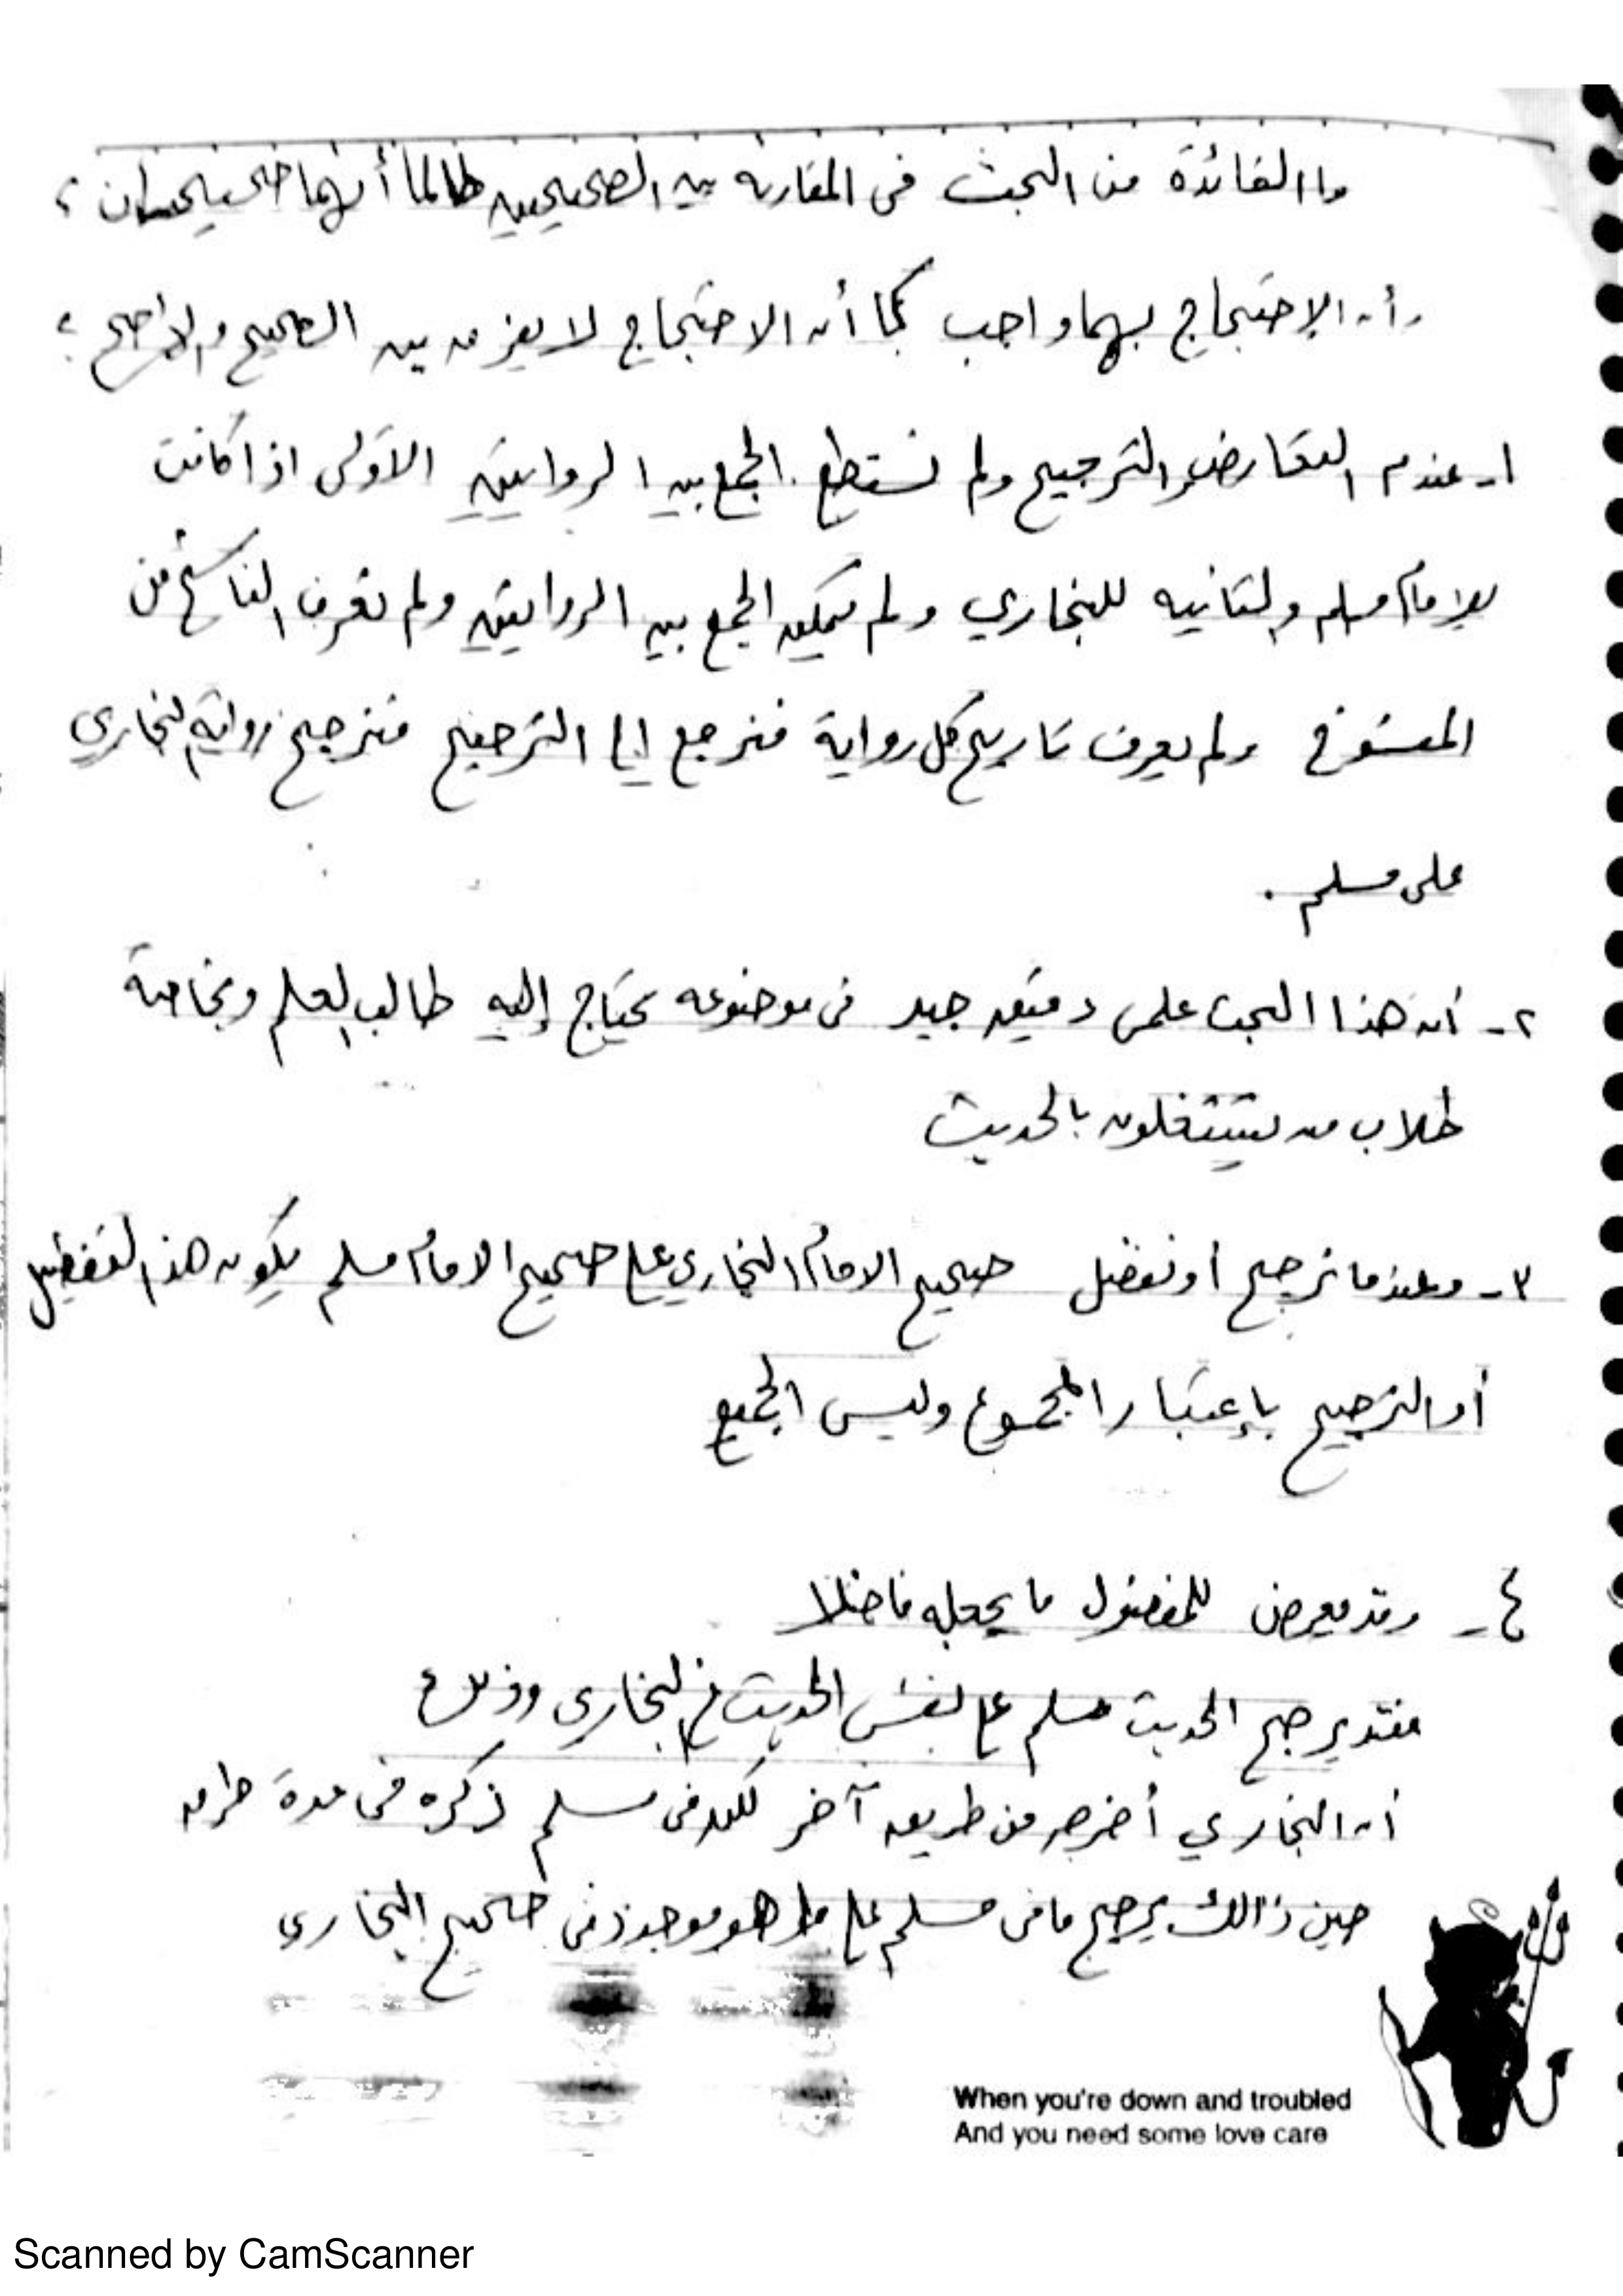 ما الفائدة من البحث في المقارنه بين الصحيحين طالما أنهما صحيحان ؟
وأن الإحتجاج بهما واجب كما أن الاحتجاج لا يفرق بين الصحيح والاصح ؟
١- عندم التعارض والترجيح ولم نستطع الجمع بين الروايتين الأولى اذا كانت
للإمام مسلم والثانيه للبخاري ولم نتمكن الجمع بين الروايتين ولم نعرف الناسخ من
المنسوخ ولم يعرف تاريخ كل رواية فنرجع إلى الترجيح فنرجح رواية البخاري
على مسلم .
٢- أن هذا البحث علمى دقيق جيد في موضوعه يحتاج إليه طالب العلم وبخاصة
طلاب من يشتغلون بالحديث
٣- وعندما نرجح أو نفضل صحيح الامام البخاري على صحيح الامام مسلم يكون هذا التفضيل
أو الترجيح بإعتبار المجموع وليس الجميع
٤- وقد يعرض للمفضول ما يجعله فاضلا
فقد يرجح الحديث مسلم على نفس الحديث في البخاري وذلك
أن البخاري أخرجه من طريق آخر لكن في مسلم ذكره في عدة طرق
حين ذالك يرجح ما في مسلم على ما هو موجود في صحيح البخاري
When you're down and troubled
And you need some love care
Scanned by CamScanner